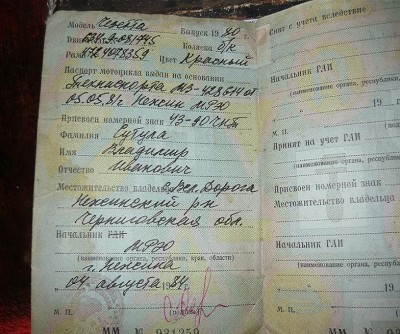 Модель Чезета Выпуск 1980 г.
Двиг. Коляска б/к
Цвет Красный
Паспорт мотоцикла выдан на основании
Техпаспорта МЭ-428614 от
05.05.81г Нежин МРЭО
Присвоен номерной знак 43-90 ЧНП
Фамилия Сутула
Имя Владимир
Отчество Иванович
Местожительство владельца Вел. Дорога
Нежинский р-н
Черниговская обл.
Начальник ГАИ
МРЭО
(наименование органа, республики, края, области)
г. Нежина
04 августа 1984 г.
М. П.
ММ № 921259
Снят с учета вследствие
Начальник ГАИ
(наименование органа, республики,
19
М. П.
Принят на учет ГАИ
(наименование органа, республики,
Присвоен номерной знак
Местожительство владельца
Начальник ГАИ
(наименование органа, республики,
19
М. П.
ММ №